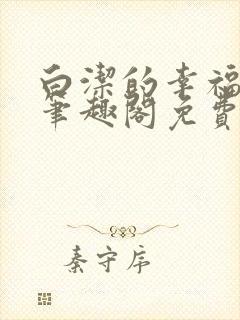 白潔的幸福
筆趣閣免費
秦守序